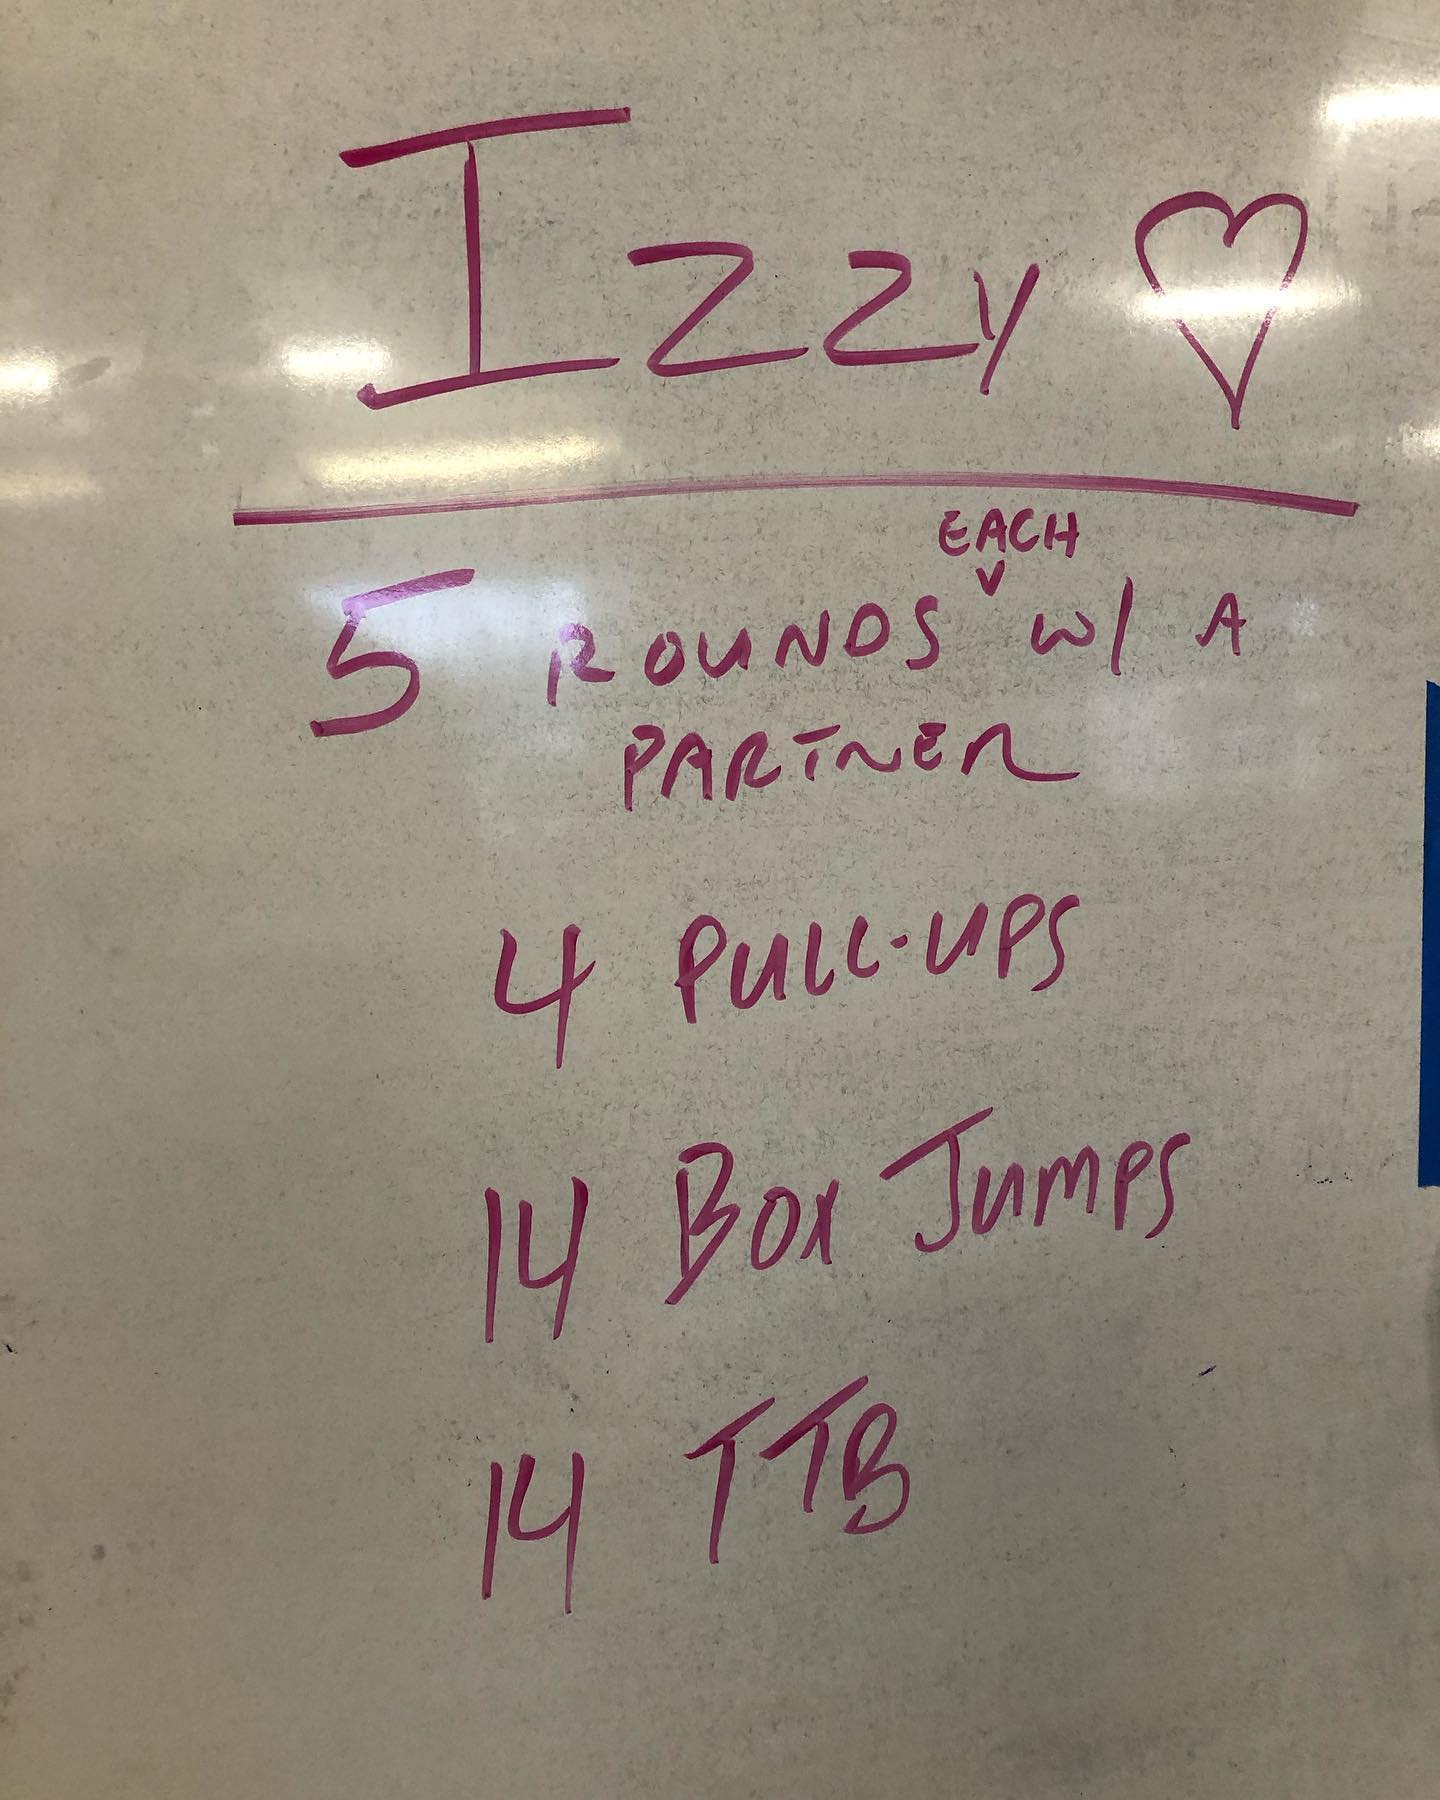 Izzy ♡
EACH
5 ROUNDS ˅ w/ A
PARTNER
4 PULL-UPS
14 BOX JUMPS
14 TTB